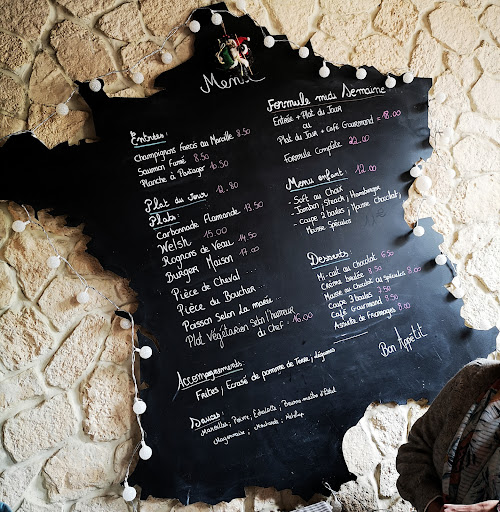 Menu
Entrées:
Champignons farcis au Maroille 8.50
Saumon Fumé 8.50
Planche à Partager 10.50
Plat du Jour 12.80
Plats:
Carbonnade Flamande 13.50
Welsh 15.00
Rognons de Veau 14.50
Burger Maison 17.00
Pièce de Cheval ...
Pièce du Boucher ...
Poisson Selon la marée ...
Plat Végétarien Selon l'humeur
du chef - 16.00
Accompagnements
Frites, Ecrasé de pomme de Terre, légumes
Sauces:
Maroilles, Poivre, Echalotte, Beurre maître d'hôtel
Mayonnaise, Moutarde, Ketchup
Formule midi Semaine
Entrée + Plat du Jour
ou
Plat du Jour + Café Gourmand = 18.00
Formule Complète 22.00
Menu enfant: 12.00
- Soft au Choix
- Jambon, Steack, Hamburger
- Coupe 2 boules, Mousse Chocolat,
Mousse Spéculos
Desserts
Mi-cuit au Chocolat 6.50
Crème brulée 8.50
Mousse au Chocolat ou Spéculos 8.00
Coupe 3 boules 2.50
Café Gourmand 8.50
Assiette de Fromages 8.00
Bon Appétit